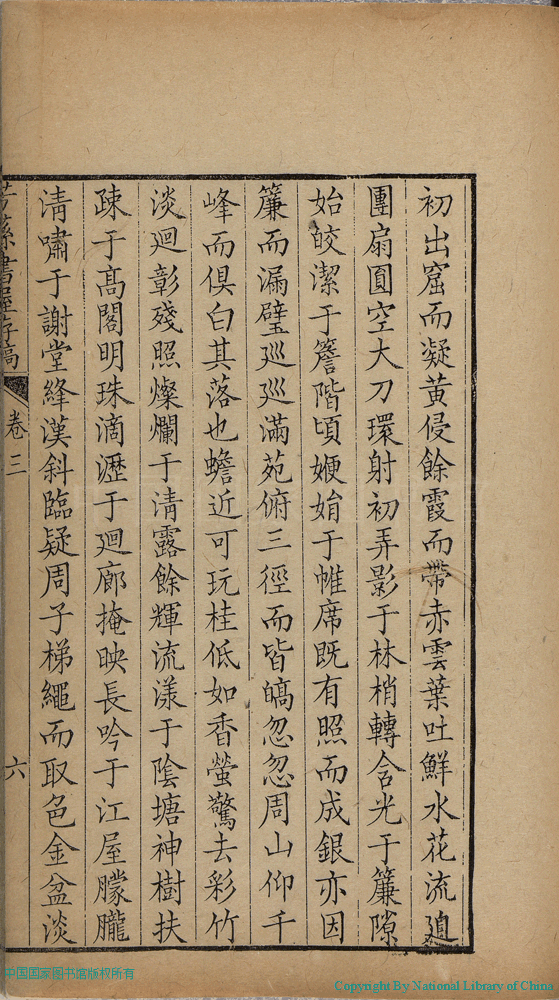 初出窟而凝黄侵餘霞而帶赤雲葉吐鮮水花流迴
團扇圓空大刀環射初弄影于林梢轉含光于簾隙
始皎潔于簷階頃㛹娟于帷席既有照而成銀亦因
簾而漏璧巡巡滿苑俯三徑而皆皜忽忽周山仰千
峰而俱白其落也蟾近可玩桂低如香螢驚去彩竹
淡迴彰殘照燦爛于清露餘輝流漾于陰塘神樹扶
疎于高閣明珠滴瀝于迴廊掩映長吟于江屋朦朧
清嘯于謝堂絳漢斜臨疑周子梯繩而取色金盆淡
卷三
六
中国国家图书馆版权所有
Copyright By National Library of China